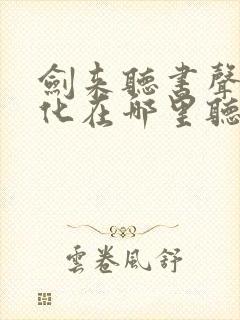 劍来聽書聲
化在哪里聽
雲卷風舒